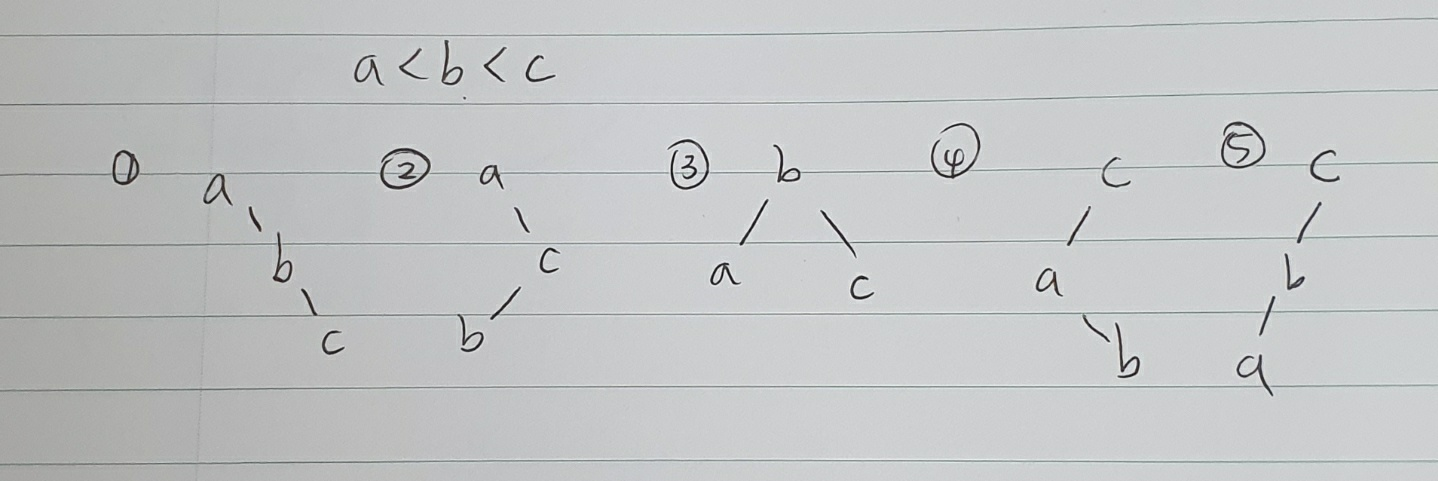 a < b < c
① a ② a ③ b ④ c ⑤ c
b c a c a b
c b b a